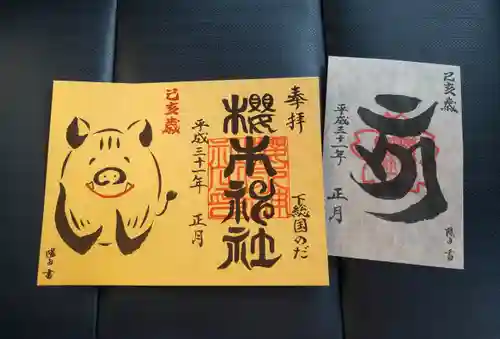 奉拝
下総国のだ
櫻木神社
平成三十一年
正月
己亥歳
己亥歳
平成三十一年
正月